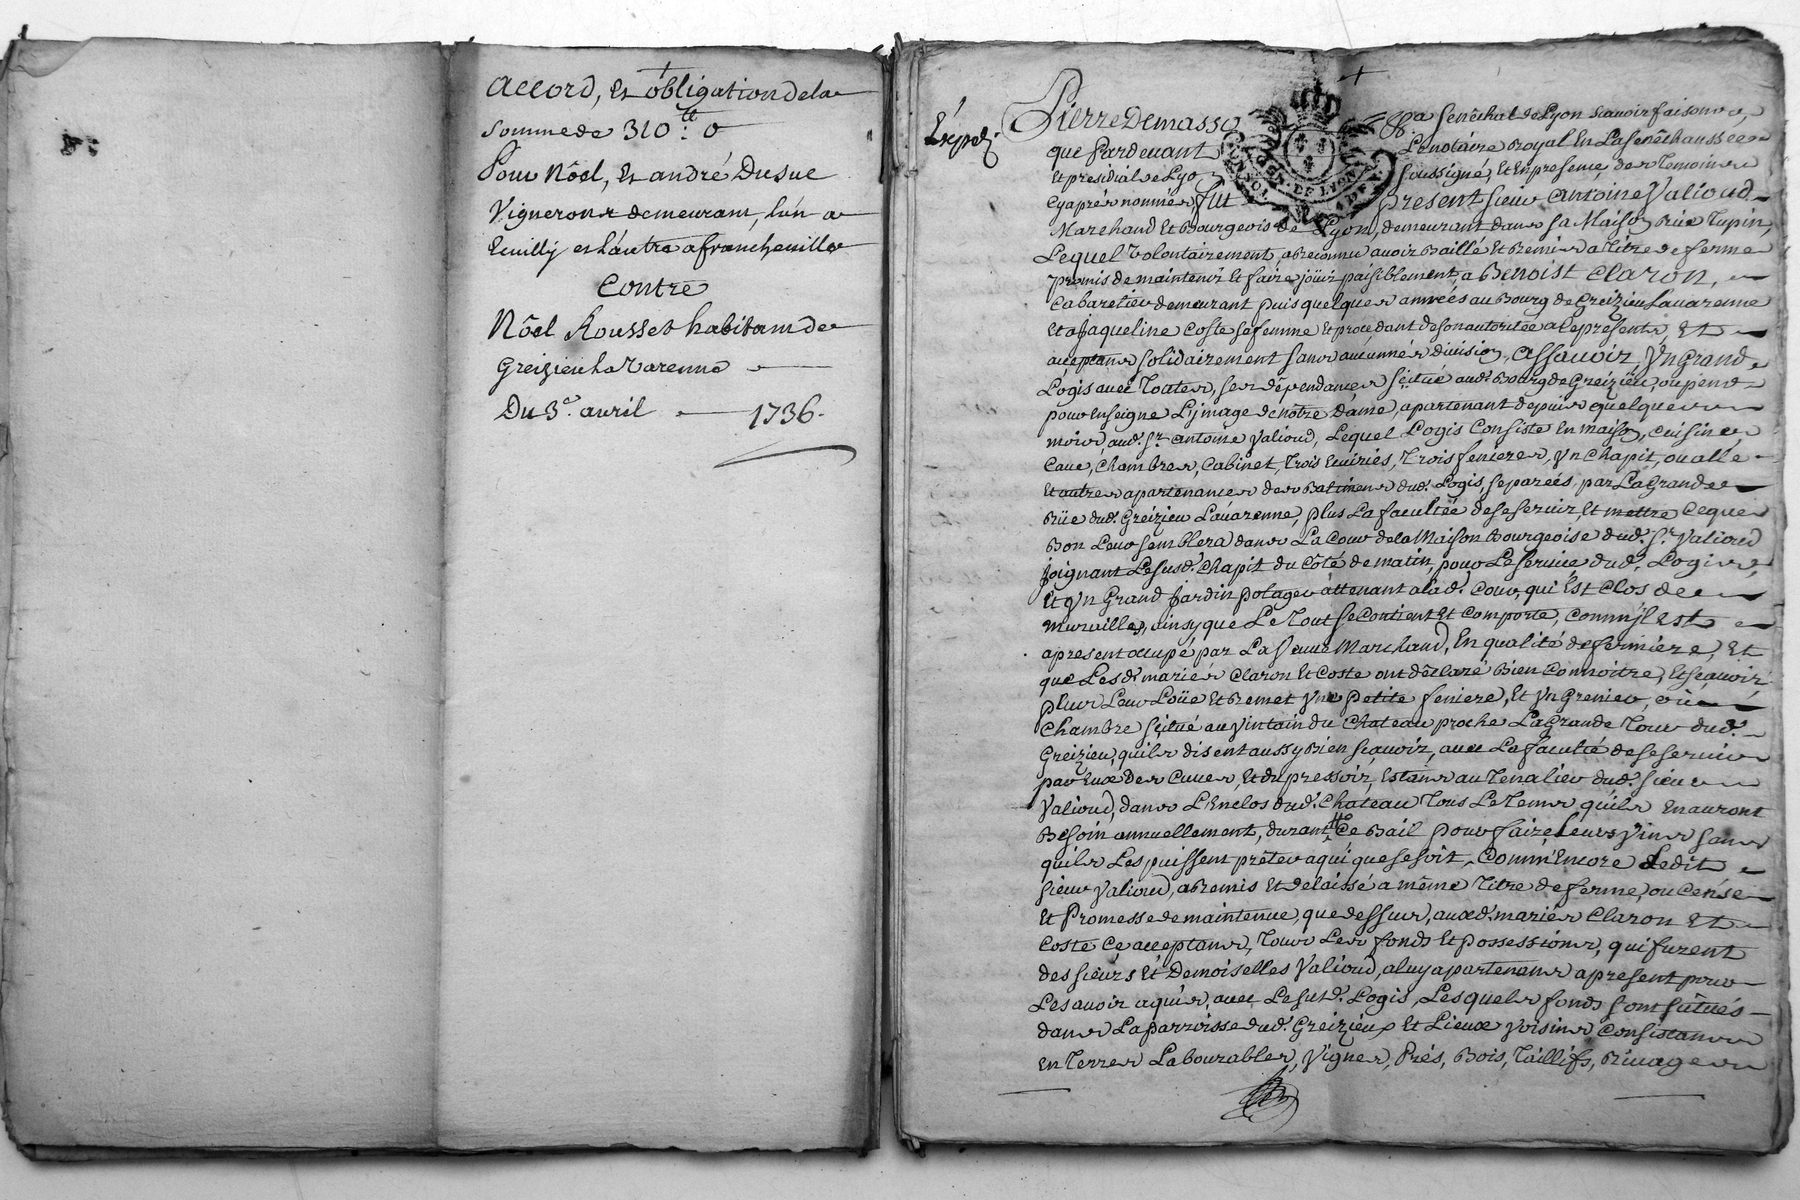 Accord, Et obligation dela
somme de 310 ᵗᵗ: 0
Pour Nôel, Et andré Dusue
Vignerons demeurant, lun a
Ecuilly et l'autre a francheville
Contre
Nôel Rousset habitant de
Greizieu la Varenne
Du 3e. avril 1736.
Expedi.
Pierre Demasso
Sénêchal de Lyon scavoir faisons,
que Pardevant Le notaire Royal En La Senêchaussée
Et presidial de Lyon soussigné, Et En presence des Temoins
Cyaprés nommés fut present sieur Antoine Valioud
Marchand Et Bourgeois de Lyon, demeurant dans sa Maison rüe Tupin,
Lequel volontairement, a Reconnu avoir Baillé Et Remis a Titre de ferme
promis de maintenir Et faire joüir paisiblement, a Benoist Claron,
Cabaretier demeurant puis quelques années au Bourg de Greizieu Lavarenne
Et a Jaqueline Coste sa femme Et procedant de son autoritée a ce presents, Et
aceptans solidairement sans aucunnes division, assavoir, Un Grand
Logis avec Toutes, ses dépendances scitué aud. Bourg de Greizieu, ou pend
pour Enseigne L'jmage de nôtre Dame, apartenant depuis quelques
mois, aud. Sr. Antoine Valioud, Lequel Logis Consiste En maison, Cuisine,
Cave, Chambres, Cabinet, Trois Ecuiries, Trois fenieres, Un Chapit, ou alle
Et autres apartenances des Batimens dud. Logis, separées par La Grande
Rüe dud. Greizieu Lavarenne, plus La facultée de se servir, Et mettre Ceque
Bon Leur semblera dans La Cour de la Maison Bourgeoise dud. Sr. Valioud
Joignant Le susd. Chapit du Côté de matin, pour Le service dud. Logis,
Et Un Grand Jardin potager attenant a lad. Cour, qui Est Clos de
murailles, ainsy que Le Tout se Contient Et Comporte, Comm'jl est
apresent ocupé par La veuve Marchand, En qualité de fermiere, Et
que Lesd. mariés Claron Et Coste ont déclaré Bien Connoitre, Et scavoir,
plus Leur Loüe Et Remet Une petite feniere, Et Un Grenier, où
Chambre scitué au Vintain du Chateau proche La Grande Tour dud.
Greizieu, quils disent aussy Bien scavoir, avec La faculté de se servir
par Eux Des Cuves, Et du pressoir, Estans au Tenalier dud. sieur
Valioud, dans L'Enclos dud. Chateau Tous Le Tems quils En auront
Besoin annuellement, durant Ce Bail pour faire Leurs Vins sans
quils Les puissent prêter a qui que se soit, Comm'Encore Ledit
sieur Valioud, a Remis Et delaissé a même Titre de ferme, ou Cense
Et Promesse de maintenue, que dessus, auxd. mariés Claron Et
Coste Ce acceptans, Tous Les fonds Et possessions, qui furent
des sieurs Et Demoiselles Valioud, a luy apartenans apresent pour
Les avoir aquis, avec Le susd. Logis, Lesquels fonds sont scitués
dans La parroisse dud. Greizieu, Et Lieux Voisins, Consistans
En Terres Labourables, Vignes, Prés, Bois, Taillifs, Rivages